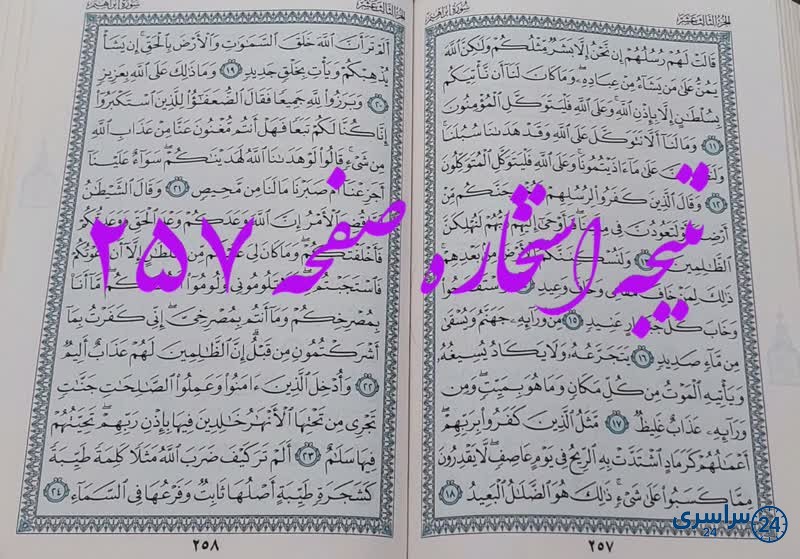 سورة إبراهيم
الجزء الثالث عشر
قَالَتْ لَهُمْ رُسُلُهُمْ إِن نَّحْنُ إِلَّا بَشَرٌ مِّثْلُكُمْ وَلَٰكِنَّ ٱللَّهَ
يَمُنُّ عَلَىٰ مَن يَشَآءُ مِنْ عِبَادِهِۦ وَمَا كَانَ لَنَآ أَن نَّأْتِيَكُم
بِسُلْطَٰنٍ إِلَّا بِإِذْنِ ٱللَّهِ وَعَلَى ٱللَّهِ فَلْيَتَوَكَّلِ ٱلْمُؤْمِنُونَ
١١ وَمَا لَنَآ أَلَّا نَتَوَكَّلَ عَلَى ٱللَّهِ وَقَدْ هَدَىٰنَا سُبُلَنَا
عَلَىٰ مَآ ءَاذَيْتُمُونَا وَعَلَى ٱللَّهِ فَلْيَتَوَكَّلِ ٱلْمُتَوَكِّلُونَ
١٢ وَقَالَ ٱلَّذِينَ كَفَرُوا۟ لِرُسُلِهِمْ مِّنْ
أَوْ لَتَعُودُنَّ فِى فَأَوْحَىٰٓ إِلَيْهِمْ رَبُّهُمْ لَنُهْلِكَنَّ
ٱلظَّٰلِمِينَ ١٣ مِنۢ بَعْدِهِمْ
ذَٰلِكَ لِمَنْ خَافَ مَقَامِى وَخَافَ وَعِيدِ
وَخَابَ كُلُّ عَنِيدٍ ١٥ مِّن وَرَآئِهِۦ جَهَنَّمُ وَيُسْقَىٰ
مِن مَّآءٍ صَدِيدٍ ١٦ يَتَجَرَّعُهُۥ وَلَا يَكَادُ يُسِيغُهُۥ
وَيَأْتِيهِ ٱلْمَوْتُ مِن كُلِّ مَكَانٍ وَمَا هُوَ بِمَيِّتٍ وَمِن
وَرَآئِهِۦ عَذَابٌ غَلِيظٌ ١٧ مَّثَلُ ٱلَّذِينَ كَفَرُوا۟ بِرَبِّهِمْ
أَعْمَٰلُهُمْ كَرَمَادٍ ٱشْتَدَّتْ بِهِ ٱلرِّيحُ فِى يَوْمٍ عَاصِفٍ لَّا يَقْدِرُونَ
مِمَّا كَسَبُوا۟ عَلَىٰ شَىْءٍ ذَٰلِكَ هُوَ ٱلضَّلَٰلُ ٱلْبَعِيدُ ١٨
٢٥٧
سورة إبراهيم
الجزء الثالث عشر
أَلَمْ تَرَ أَنَّ ٱللَّهَ خَلَقَ ٱلسَّمَٰوَٰتِ وَٱلْأَرْضَ بِٱلْحَقِّ إِن يَشَأْ
يُذْهِبْكُمْ وَيَأْتِ بِخَلْقٍ جَدِيدٍ ١٩ وَمَا ذَٰلِكَ عَلَى ٱللَّهِ بِعَزِيزٍ
٢٠ وَبَرَزُوا۟ لِلَّهِ جَمِيعًا فَقَالَ ٱلضُّعَفَٰٓؤُا۟ لِلَّذِينَ ٱسْتَكْبَرُوٓا۟
إِنَّا كُنَّا لَكُمْ تَبَعًا فَهَلْ أَنتُم مُّغْنُونَ عَنَّا مِنْ عَذَابِ ٱللَّهِ
مِن شَىْءٍ قَالُوا۟ لَوْ هَدَىٰنَا ٱللَّهُ لَهَدَيْنَٰكُمْ سَوَآءٌ عَلَيْنَآ
أَجَزِعْنَآ أَمْ صَبَرْنَا مَا لَنَا مِن مَّحِيصٍ ٢١ وَقَالَ ٱلشَّيْطَٰنُ
قُضِىَ ٱلْأَمْرُ إِنَّ ٱللَّهَ وَعَدَكُمْ وَعْدَ ٱلْحَقِّ وَوَعَدتُّكُمْ
فَأَخْلَفْتُكُمْ وَمَا كَانَ لِىَ إِلَّآ أَن دَعَوْتُكُمْ
فَٱسْتَجَبْتُمْ تَلُومُونِى وَلُومُوٓا۟ مَّآ أَنَا۠
بِمُصْرِخِكُمْ وَمَآ أَنتُم بِمُصْرِخِىَّ إِنِّى كَفَرْتُ بِمَآ
أَشْرَكْتُمُونِ مِن قَبْلُ إِنَّ ٱلظَّٰلِمِينَ لَهُمْ عَذَابٌ أَلِيمٌ
٢٢ وَأُدْخِلَ ٱلَّذِينَ ءَامَنُوا۟ وَعَمِلُوا۟ ٱلصَّٰلِحَٰتِ جَنَّٰتٍ
تَجْرِى مِن تَحْتِهَا ٱلْأَنْهَٰرُ خَٰلِدِينَ فِيهَا بِإِذْنِ رَبِّهِمْ تَحِيَّتُهُمْ
فِيهَا سَلَٰمٌ ٢٣ أَلَمْ تَرَ كَيْفَ ضَرَبَ ٱللَّهُ مَثَلًا كَلِمَةً طَيِّبَةً
كَشَجَرَةٍ طَيِّبَةٍ أَصْلُهَا ثَابِتٌ وَفَرْعُهَا فِى ٱلسَّمَآءِ ٢٤
٢٥٨
نتیجه استخاره صفحه ۲۵۷
سراسری
24
24